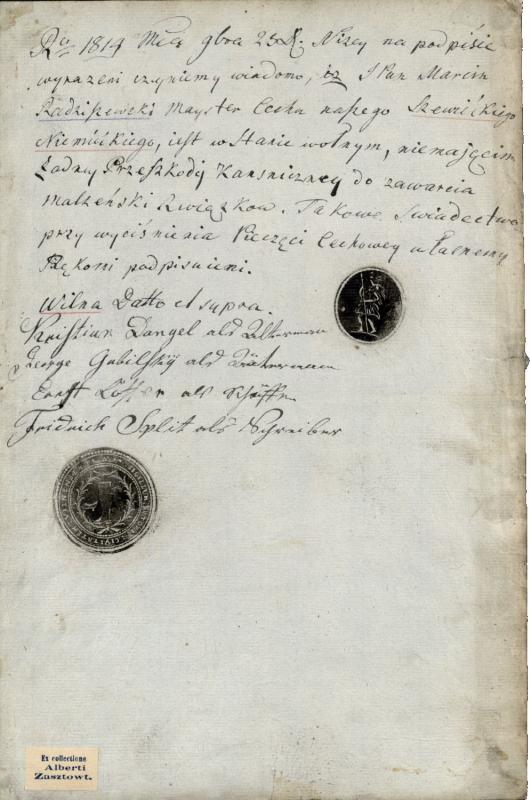 Rku 1814 Mca 9bra 25 D. Niżey na podpisie
wyrażeni czyniemy wiadomo, iż JPan Marcin
Radziszewski Mayster Cechu naszego Szewickiego
Niemickiego, iest w Stanie wolnym, niemaięcim
Żadney Przeszkody Kanniczney do zawarcia
Malżeński Związkow. Takowe Swiadectwo
przy wyciśnienia Pieczęci Cechowey własnemy
Rękomi podpisuiemi.
Wilna Datto et supra.
Kristian Dangel als Alterman
George Gabilskij als
Ernst als Schaffer
Fridrich Split als Schreiber
Ex collectione
Alberti
Zasztowt.